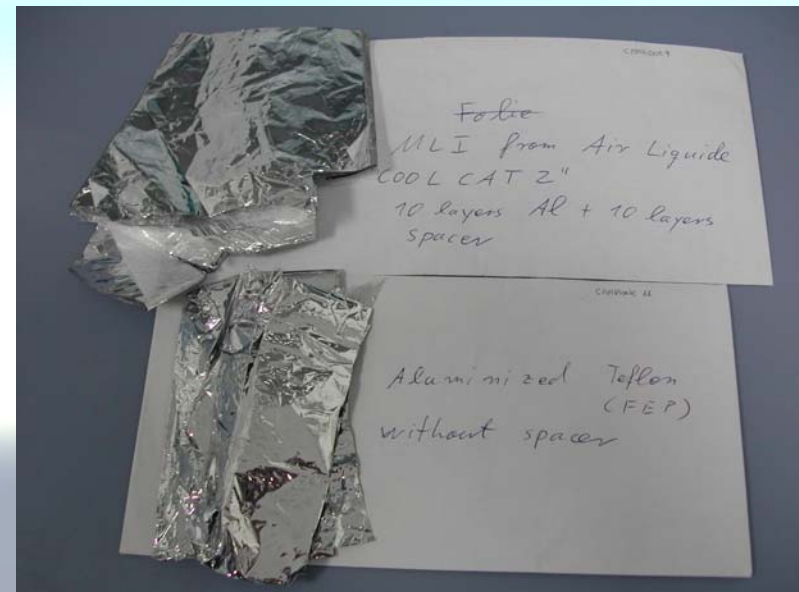 Folie
MLI from Air Liquide
COOL CAT 2"
10 layers Al + 10 layers
spacer
Aluminized Teflon
(FEP)
without spacer